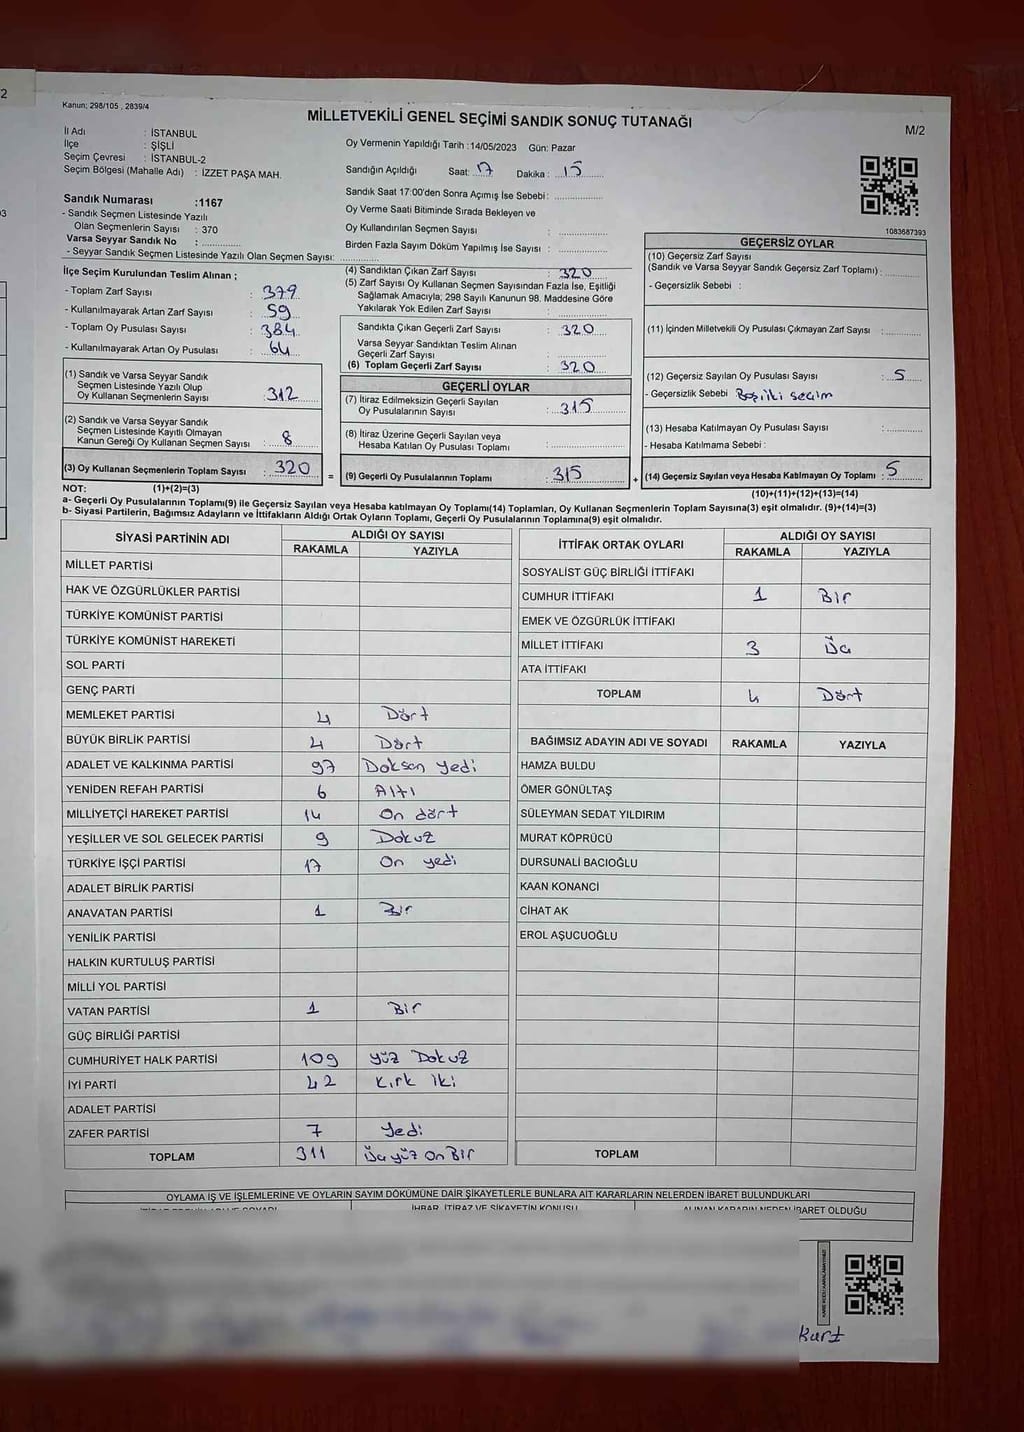 2
3
Kanun; 298/105 , 2839/4
MİLLETVEKİLİ GENEL SEÇİMİ SANDIK SONUÇ TUTANAĞI
M/2
İl Adı : İSTANBUL
İlçe : ŞİŞLİ
Seçim Çevresi : İSTANBUL-2
Seçim Bölgesi (Mahalle Adı) : İZZET PAŞA MAH.
Oy Vermenin Yapıldığı Tarih :14/05/2023 Gün: Pazar
Sandığın Açıldığı Saat: 17 Dakika : 15
Sandık Saat 17:00'den Sonra Açılmış İse Sebebi:
Oy Verme Saati Bitiminde Sırada Bekleyen ve
Oy Kullandırılan Seçmen Sayısı :
Birden Fazla Sayım Döküm Yapılmış İse Sayısı :
Sandık Numarası :1167
- Sandık Seçmen Listesinde Yazılı
Olan Seçmenlerin Sayısı : 370
Varsa Seyyar Sandık No :
- Seyyar Sandık Seçmen Listesinde Yazılı Olan Seçmen Sayısı:
1083687393
İlçe Seçim Kurulundan Teslim Alınan ;
- Toplam Zarf Sayısı : 379
- Kullanılmayarak Artan Zarf Sayısı : 59
- Toplam Oy Pusulası Sayısı : 384
- Kullanılmayarak Artan Oy Pusulası : 64
(1) Sandık ve Varsa Seyyar Sandık
Seçmen Listesinde Yazılı Olup
Oy Kullanan Seçmenlerin Sayısı : 312
(2) Sandık ve Varsa Seyyar Sandık
Seçmen Listesinde Kayıtlı Olmayan
Kanun Gereği Oy Kullanan Seçmen Sayısı : 8
(3) Oy Kullanan Seçmenlerin Toplam Sayısı : 320
(4) Sandıktan Çıkan Zarf Sayısı : 320
(5) Zarf Sayısı Oy Kullanan Seçmen Sayısından Fazla İse, Eşitliği
Sağlamak Amacıyla; 298 Sayılı Kanunun 98. Maddesine Göre
Yakılarak Yok Edilen Zarf Sayısı :
Sandıkta Çıkan Geçerli Zarf Sayısı : 320
Varsa Seyyar Sandıktan Teslim Alınan
Geçerli Zarf Sayısı :
(6) Toplam Geçerli Zarf Sayısı : 320
GEÇERLİ OYLAR
(7) İtiraz Edilmeksizin Geçerli Sayılan
Oy Pusulalarının Sayısı : 315
(8) İtiraz Üzerine Geçerli Sayılan veya
Hesaba Katılan Oy Pusulası Toplamı :
= (9) Geçerli Oy Pusulalarının Toplamı : 315 +
GEÇERSİZ OYLAR
(10) Geçersiz Zarf Sayısı
(Sandık ve Varsa Seyyar Sandık Geçersiz Zarf Toplamı) :
- Geçersizlik Sebebi :
(11) İçinden Milletvekili Oy Pusulası Çıkmayan Zarf Sayısı :
(12) Geçersiz Sayılan Oy Pusulası Sayısı : 5
- Geçersizlik Sebebi
(13) Hesaba Katılmayan Oy Pusulası Sayısı :
- Hesaba Katılmama Sebebi :
(14) Geçersiz Sayılan veya Hesaba Katılmayan Oy Toplamı : 5
NOT: (1)+(2)=(3)
(10)+(11)+(12)+(13)=(14)
a- Geçerli Oy Pusulalarının Toplamı(9) ile Geçersiz Sayılan veya Hesaba Katılmayan Oy Toplamı(14) Toplamları, Oy Kullanan Seçmenlerin Toplam Sayısına(3) eşit olmalıdır. (9)+(14)=(3)
b- Siyasi Partilerin, Bağımsız Adayların ve İttifakların Aldığı Ortak Oyların Toplamı, Geçerli Oy Pusulalarının Toplamına(9) eşit olmalıdır.
SİYASİ PARTİNİN ADI ALDIĞI OY SAYISI
RAKAMLA YAZIYLA
MİLLET PARTİSİ
HAK VE ÖZGÜRLÜKLER PARTİSİ
TÜRKİYE KOMÜNİST PARTİSİ
TÜRKİYE KOMÜNİST HAREKETİ
SOL PARTİ
GENÇ PARTİ
MEMLEKET PARTİSİ 4 Dört
BÜYÜK BİRLİK PARTİSİ 4 Dört
ADALET VE KALKINMA PARTİSİ 97 Doksan yedi
YENİDEN REFAH PARTİSİ 6 Altı
MİLLİYETÇİ HAREKET PARTİSİ 14 On dört
YEŞİLLER VE SOL GELECEK PARTİSİ 9 Dokuz
TÜRKİYE İŞÇİ PARTİSİ 17 On yedi
ADALET BİRLİK PARTİSİ
ANAVATAN PARTİSİ 1 Bir
YENİLİK PARTİSİ
HALKIN KURTULUŞ PARTİSİ
MİLLİ YOL PARTİSİ
VATAN PARTİSİ 1 Bir
GÜÇ BİRLİĞİ PARTİSİ
CUMHURİYET HALK PARTİSİ 109 yüz Dokuz
İYİ PARTİ 42 Kırk iki
ADALET PARTİSİ
ZAFER PARTİSİ 7 Yedi
TOPLAM 311 Üç yüz On Bir
İTTİFAK ORTAK OYLARI ALDIĞI OY SAYISI
RAKAMLA YAZIYLA
SOSYALİST GÜÇ BİRLİĞİ İTTİFAKI
CUMHUR İTTİFAKI 1 Bir
EMEK VE ÖZGÜRLÜK İTTİFAKI
MİLLET İTTİFAKI 3 Üç
ATA İTTİFAKI
TOPLAM 4 Dört
BAĞIMSIZ ADAYIN ADI VE SOYADI RAKAMLA YAZIYLA
HAMZA BULDU
ÖMER GÖNÜLTAŞ
SÜLEYMAN SEDAT YILDIRIM
MURAT KÖPRÜCÜ
DURSUNALİ BACIOĞLU
KAAN KONANCİ
CİHAT AK
EROL AŞUCUOĞLU
TOPLAM
OYLAMA İŞ VE İŞLEMLERİNE VE OYLARIN SAYIM DÖKÜMÜNE DAİR ŞİKAYETLERLE BUNLARA AİT KARARLARIN NELERDEN İBARET BULUNDUKLARI
İHBAR, İTİRAZ VE ŞİKAYETİN KONUSU ALINAN KARARIN NEDEN İBARET OLDUĞU
Kurt